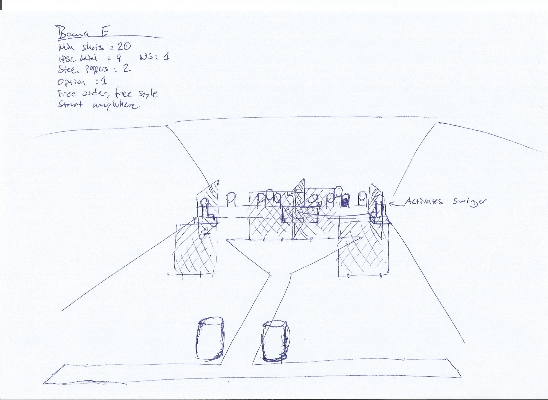 Bana E
Min shots = 20
NS: 1
Steel Poppers = 2
Option = 1
Free order, free style
Start anywhere
Activates Swinger